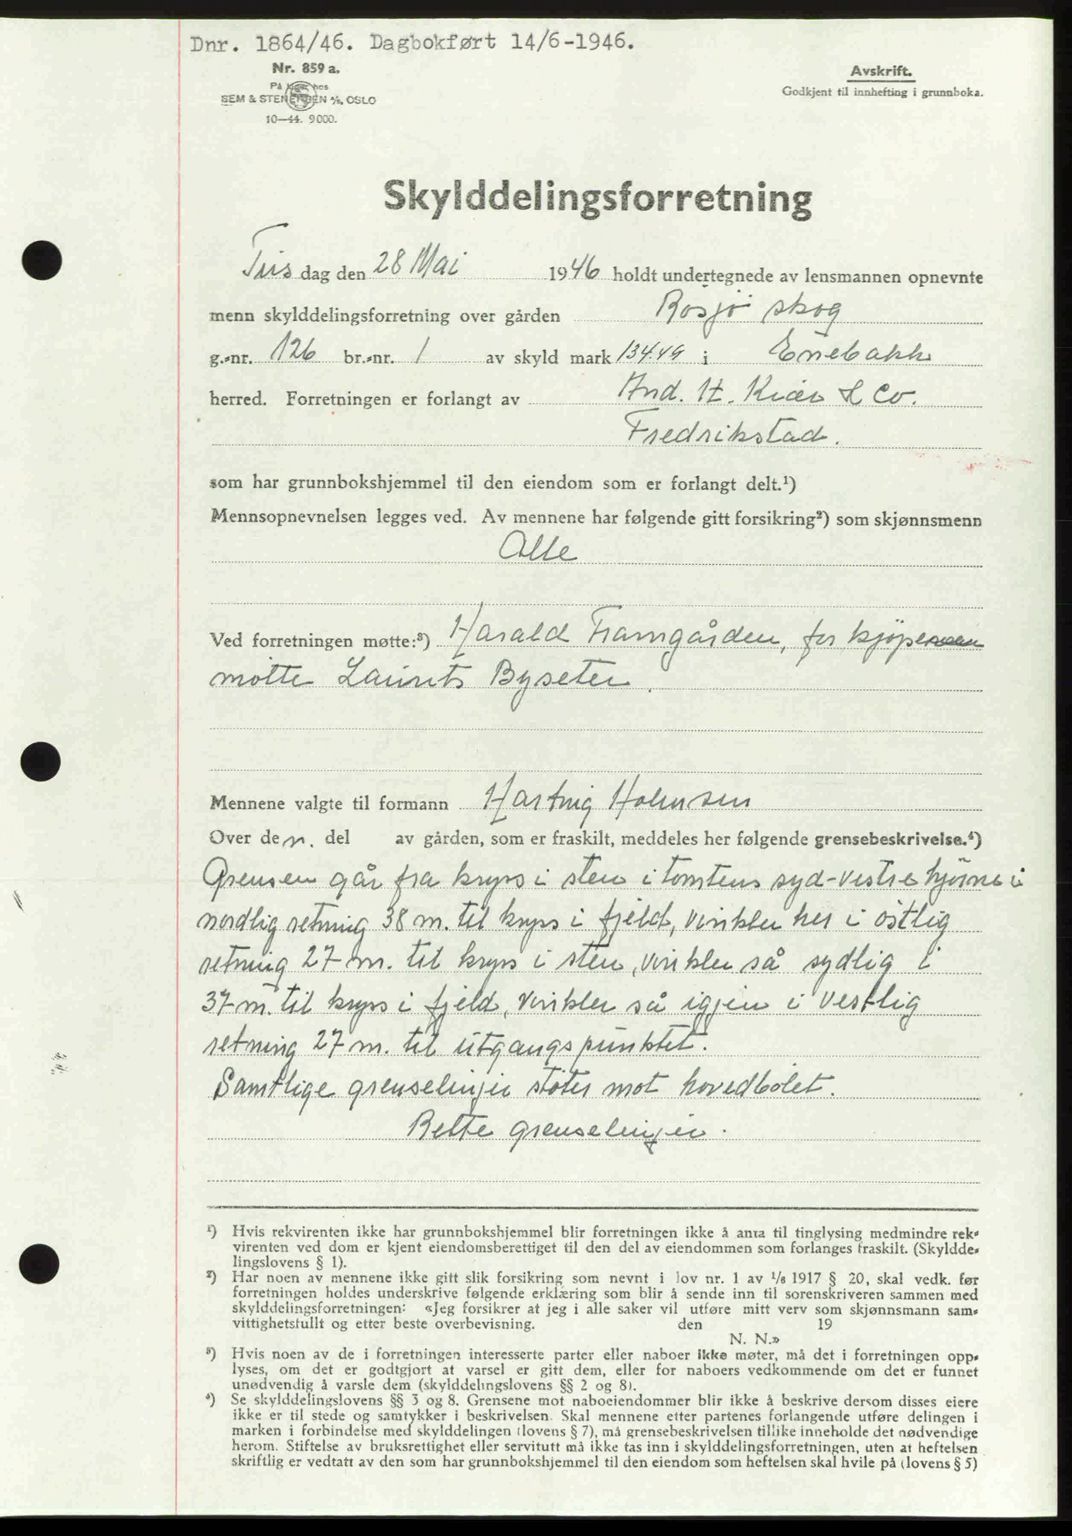 Dnr. 1864/46. Dagbokført 14/6-1946.
Nr. 859 a.
På lager hos
SEM & STENERSEN A/S, OSLO
10—44. 9000.
Avskrift.
Godkjent til innhefting i grunnboka.
Skylddelingsforretning
Tirs dag den 28 Mai 1946 holdt undertegnede av lensmannen opnevnte
menn skylddelingsforretning over gården Rosjø skog
g.-nr. 126 br.-nr. 1 av skyld mark 134.49 i Enebakk
herred. Forretningen er forlangt av And. H. Kiær & Co.
Fredrikstad.
som har grunnbokshjemmel til den eiendom som er forlangt delt.¹)
Mennsopnevnelsen legges ved. Av mennene har følgende gitt forsikring²) som skjønnsmenn
Alle
Ved forretningen møtte:³) Harald Framgården, for kjøperen
møtte Laurits Byseter.
Mennene valgte til formann Hartvig Holmsen
Over den. del av gården, som er fraskilt, meddeles her følgende grensebeskrivelse.⁴)
Grensen går fra kryss i sten i tomtens syd-vestre hjørne i
nordlig retning 38 m. til kryss i fjeld, vinkler her i østlig
retning 27 m. til kryss i sten, vinkler så sydlig i
37 m. til kryss i fjeld, vinkler så igjen i vestlig
retning 27 m. til utgangspunktet.
Samtlige grenselinjer støter mot hovedbølet.
Rette grenselinjer.
¹) Hvis rekvirenten ikke har grunnbokshjemmel blir forretningen ikke å anta til tinglysing medmindre rek-
virenten ved dom er kjent eiendomsberettiget til den del av eiendommen som forlanges fraskilt. (Skyldde-
lingslovens § 1).
²) Har noen av mennene ikke gitt slik forsikring som nevnt i lov nr. 1 av 1/6 1917 § 20, skal vedk. før
forretningen holdes underskrive følgende erklæring som blir å sende inn til sorenskriveren sammen med
skylddelingsforretningen: «Jeg forsikrer at jeg i alle saker vil utføre mitt verv som skjønnsmann sam-
vittighetsfullt og etter beste overbevisning. den 19
N. N.»
³) Hvis noen av de i forretningen interesserte parter eller naboer ikke møter, må det i forretningen opp-
lyses, om det er godtgjort at varsel er gitt dem, eller for naboers vedkommende om det er funnet
unødvendig å varsle dem (skylddelingslovens §§ 2 og 8).
⁴) Se skylddelingslovens §§ 3 og 8. Grensene mot naboeiendommer blir ikke å beskrive dersom disses eiere
ikke er til stede og samtykker i beskrivelsen. Skal mennene etter partenes forlangende utføre delingen i
marken i forbindelse med skylddelingen (lovens § 7), må grensebeskrivelsen tillike inneholde det nødvendige
herom. Stiftelse av bruksrettighet eller servitutt må ikke tas inn i skylddelingsforretningen, uten at heftelsen
skriftlig er vedtatt av den som har grunnbokshjemmel til den eiendom som heftelsen skal hvile på (lovens § 5)